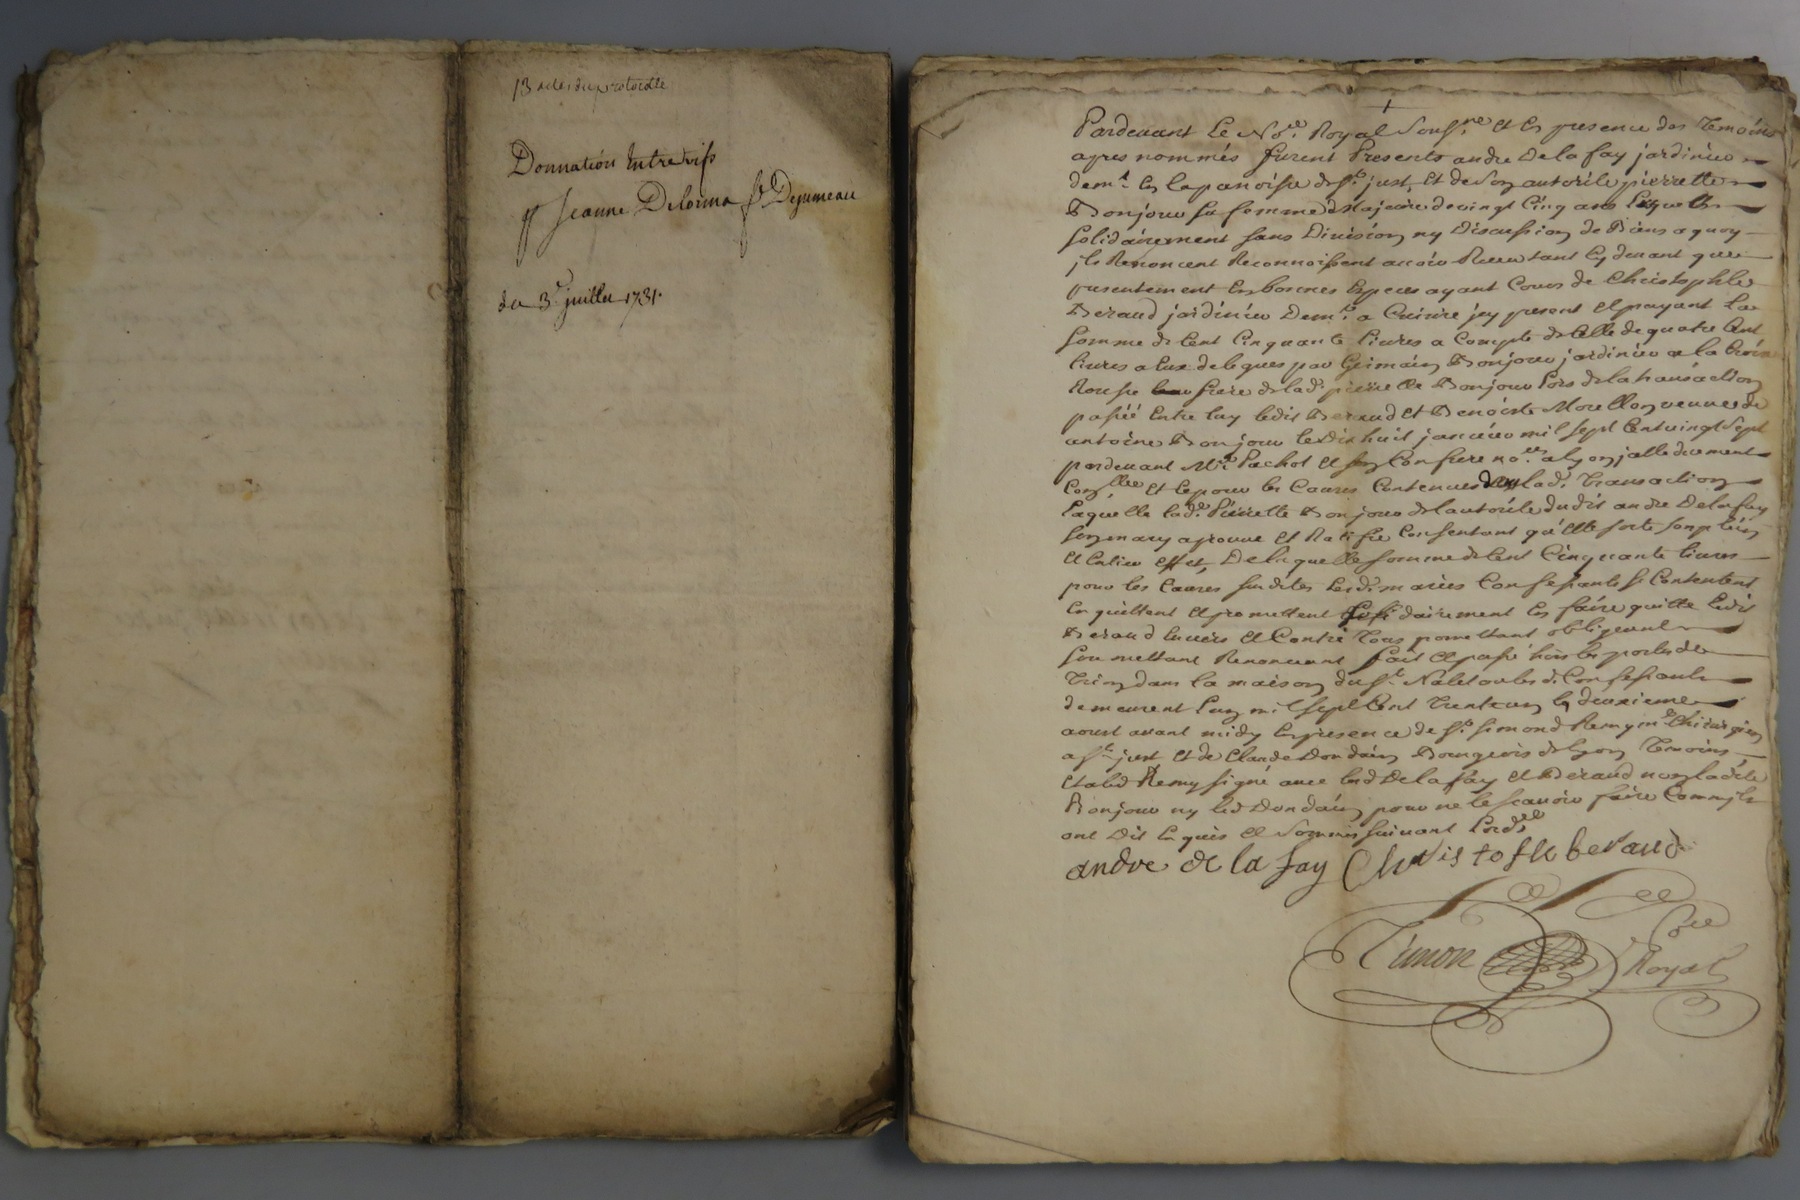 13 actes du protocolle
Donnation Entre vifs
pr Jeanne Delorma sr. Dejumeau
du 3e. juillet 1731.
Pardevant Le Nore. Royal Soussne. et En presence des Temoins
apres nommés furent Presents andre De la fay jardinier
demt. En laparoisse de st. just, et de Son autorité pierrette
Bonjour sa femme Majeure de vingt Cinq ans Lesquels
solidairement sans Division ny Discussion de Biens a quoy
jls Renoncent Reconnoissent avoir Receu tant Cy devant que
presentement En bonnes Especes ayant Cours de Christophle
Beraud jardinier Demt. a Cuirire jcy present et payant La
somme de Cent Cinquante livres a Compte de Celle de quatre Cent
livres a Eux deleguée par Germain Bonjour jardinier a la Croix
Rousse frere de lad. pierrette Bonjour Lors de la transaction
passée Entre luy ledit Beraud et Benoiste Morellon veuve de
antoine Bonjour le dix huit janvier mil sept Cent vingt Sept
pardevant Me. Pachot et son Confrere nores. a Lyon jcelle duement
Conllée et ce pour les Causes Contenues dans lad. Transaction
Laquelle lade. Pierrette Bonjour de lautorité dudit andre De la fay
son mary aprouve et Ratifie Consentant qu'Elle sorte son plein
et Entier effet, De laquelle somme de Cent Cinquante livres
pour les Causes susdites Lesd. mariés Confessants se Contentent
En quittent et promettent solidairement En faire quitte Ledit
Beraud Envers et Contre Tous promettant obligeant
soumettant Renonceant fait et passé hors les portes de
Trion dans la maison du sr. où lesd. Confessants
demeurent L'an mil sept Cent Trente un le deuxieme
aoust avant midy En presence de sr. simond Remy me. Chirurgien
a st. just et de Claude Dondain Bourgeois de Lyon Temoins
Et a led Remy signé avec lesd De la fay et Beraud non ladite
Bonjour ny led Dondain pour ne le scavoir faire Comm'jls
ont Dit Enquis et Sommés suivant Lordce
andre de la fay Christofle beraud
Simon Nore
Royal